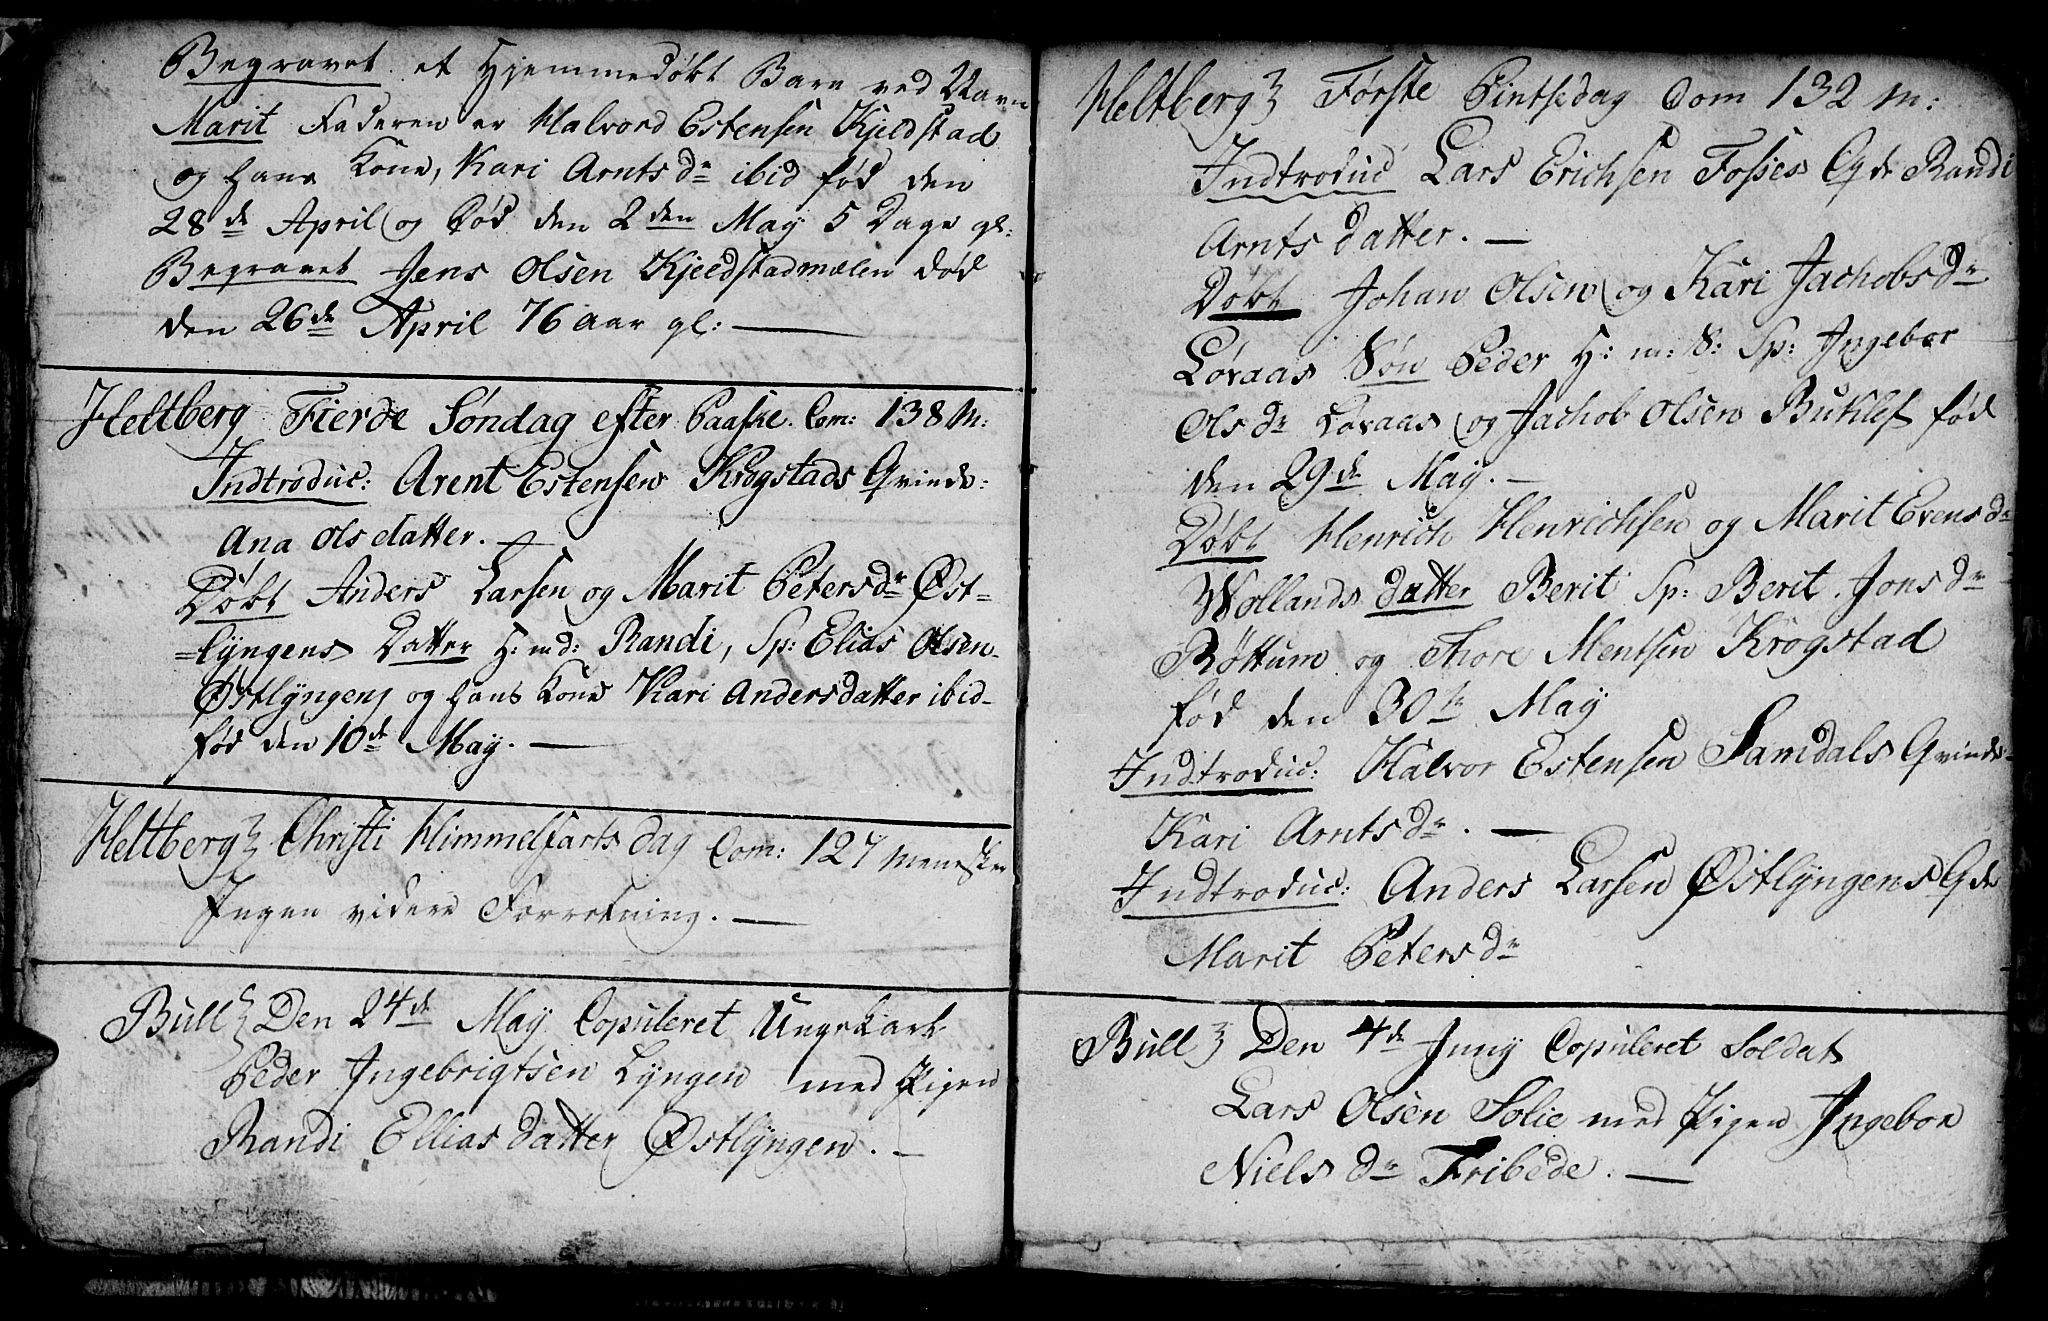 Begravet et Hjemmedøbt Barn ved Navn
Marit Faderen er Halvord Estensen Kjeldstad
og Hans Kone, Kari Arntsdr ibid fød den
28de April og Død den 2den May 5 Dage gl:
Begravet Jens Olsen Kjeldstadmælen død
den 26de April 76 aar gl:
Heltberg Fierde Søndag efter Paaske. Com: 138 M:
Indtroduc: Arent Estensen Krogstads Qvinde:
Ana Olsdatter.
Døbt Anders Larsen og Marit Petersdr Øst=
=lyngens Datter H: md: Randi, Sp: Elias Olsen
Østlyngens og Hans Kone Kari Andersdatter ibid
fød den 10de May.
Heltberg Christi Himmelfarts dag Com: 127 Mennesker
Ingen videre Forretning.
Bull Den 24de May Copuleret Ungekarl
Peder Ingebrigtsen Lyngen med Pigen
Randi Elliasdatter Østlyngen.
Heltberg Første Pintsedag Com 132 M:
Indtroduc Lars Erichsen Fosses Qde Randi
Arntsdatter.
Døbt Johan Olsen og Kari Jachobsdr
Løvaas Søn Peder H: m: 8: Sp: Ingebor
Olsdr Løvaas og Jachob Olsen Buklef fød
den 29de May.
Døbt Henrich Henrichsen og Marit Evensdr
Wollands datter Berit Sp: Berit Jonsdr
Røttum og Thore Mentsen Krogstad
fød den 30te May
Indtroduc: Halvor Estensen Samdals Qvinde
Kari Arntsdr.
Indtroduc: Anders Larsen Østlyngens Qde
Marit Petersdr
Bull Den 4de Juny Copuleret Soldat
Lars Olsen Solie med Pigen Ingebor
Nielsdr Fribede.